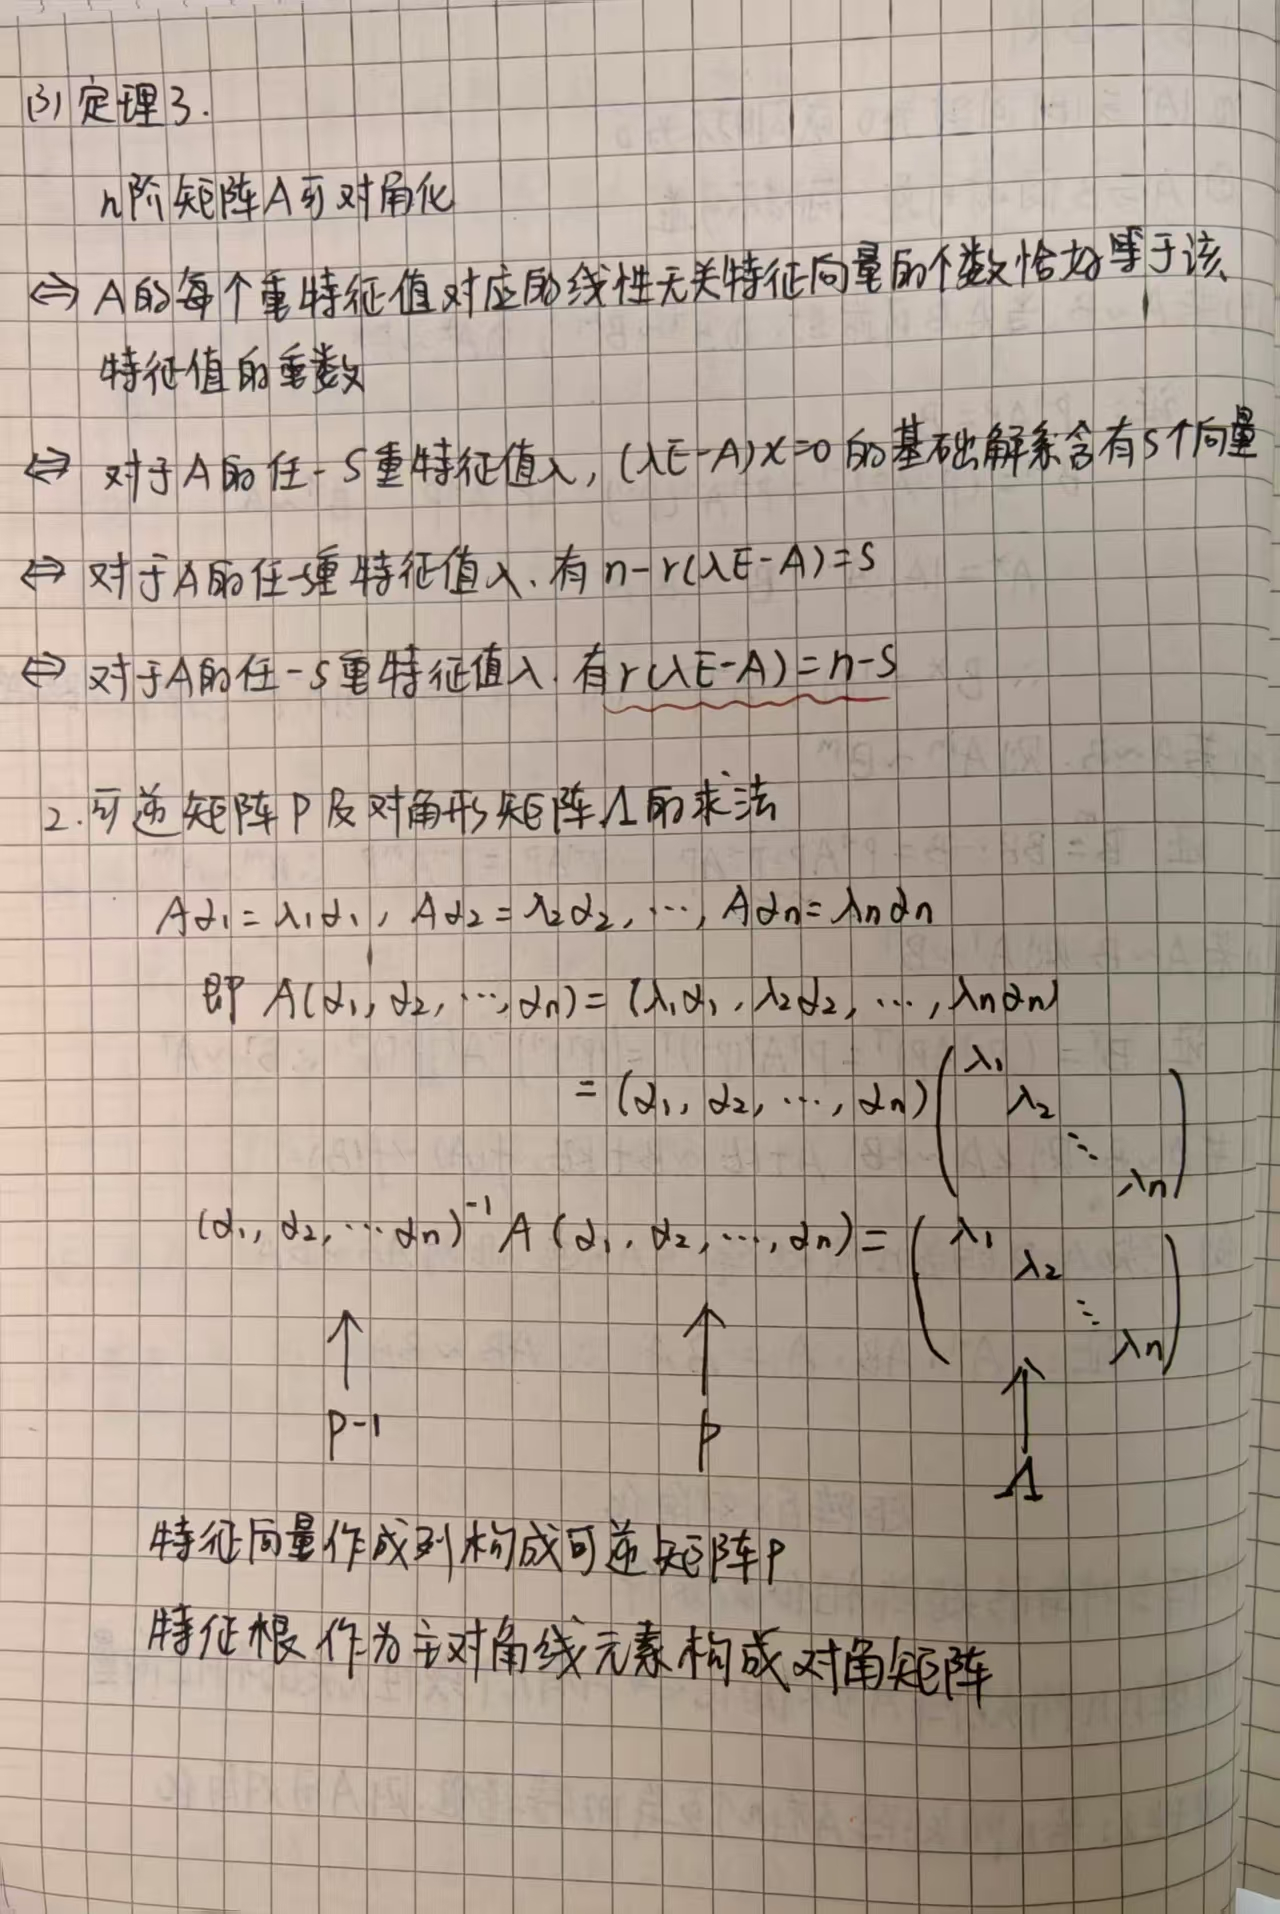 (3) 定理3.
n阶矩阵A可对角化
⇔ A的每个重特征值对应的线性无关特征向量的个数恰好等于该
特征值的重数
⇔ 对于A的任一S重特征值λ, (λE-A)x=0的基础解系含有S个向量
⇔ 对于A的任一S重特征值λ,有 n-r(λE-A)=S
⇔ 对于A的任一S重特征值λ,有r(λE-A)=n-S
2.可逆矩阵P及对角形矩阵Λ的求法
Aα₁=λ₁α₁, Aα₂=λ₂α₂, ⋯, Aαn=λnαn
即 A(α₁, α₂, ⋯, αn)=(λ₁α₁, λ₂α₂, ⋯, λnαn)
=(α₁, α₂, ⋯, αn)(λ₁ λ₂ ⋱ λn)
(α₁, α₂, ⋯αn)⁻¹A(α₁, α₂, ⋯, αn)=(λ₁ λ₂ ⋱ λn)
↑ ↑ ↑
P-1 P Λ
特征向量作成列构成可逆矩阵P
特征根作为主对角线元素构成对角矩阵